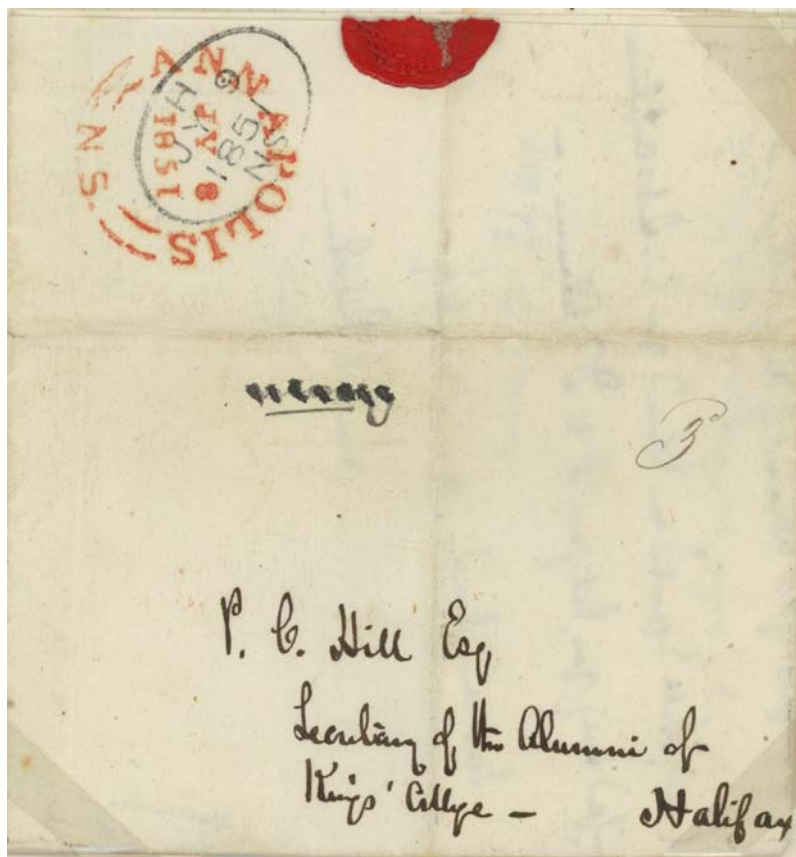 ANNAPOLIS
JY 8
1851
N S
H
JY 9
1851
NS
3
P. C. Hill Esq
Secretary of the Alumni of
Kings' College – Halifax